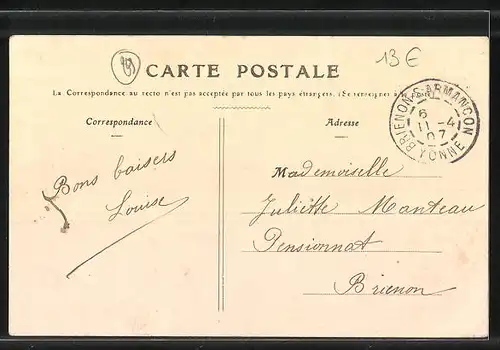 89
13 €
CARTE POSTALE
La Correspondance au recto n'est pas acceptée par tous les pays étrangers. (Se renseigner à la
BRIENON-S-ARMANÇON
6
11 -4
07
YONNE
Correspondance
Adresse
Bons baisers
Louise
Mademoiselle
Juliette Manteau
Pensionnat
Brienon